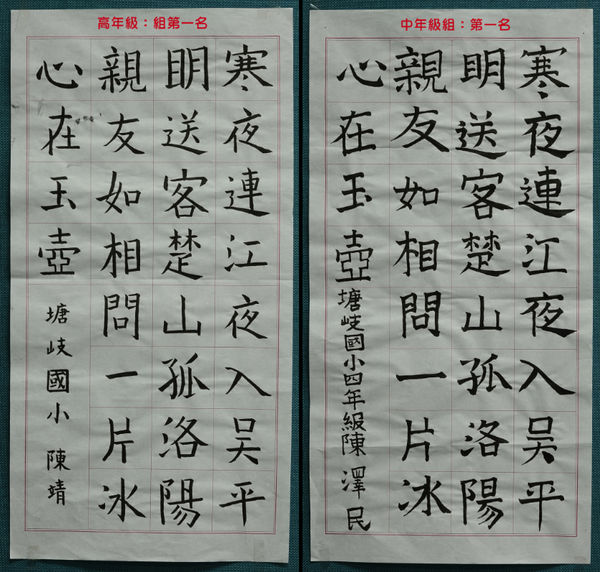 高年級：組第一名
寒夜連江夜入吳平
眀送客楚山孤洛陽
親友如相問一片冰
心在玉壺 塘岐國小 陳靖
中年級組：第一名
寒夜連江夜入吳平
眀送客楚山孤洛陽
親友如相問一片冰
心在玉壺 塘岐國小四年級陳澤民